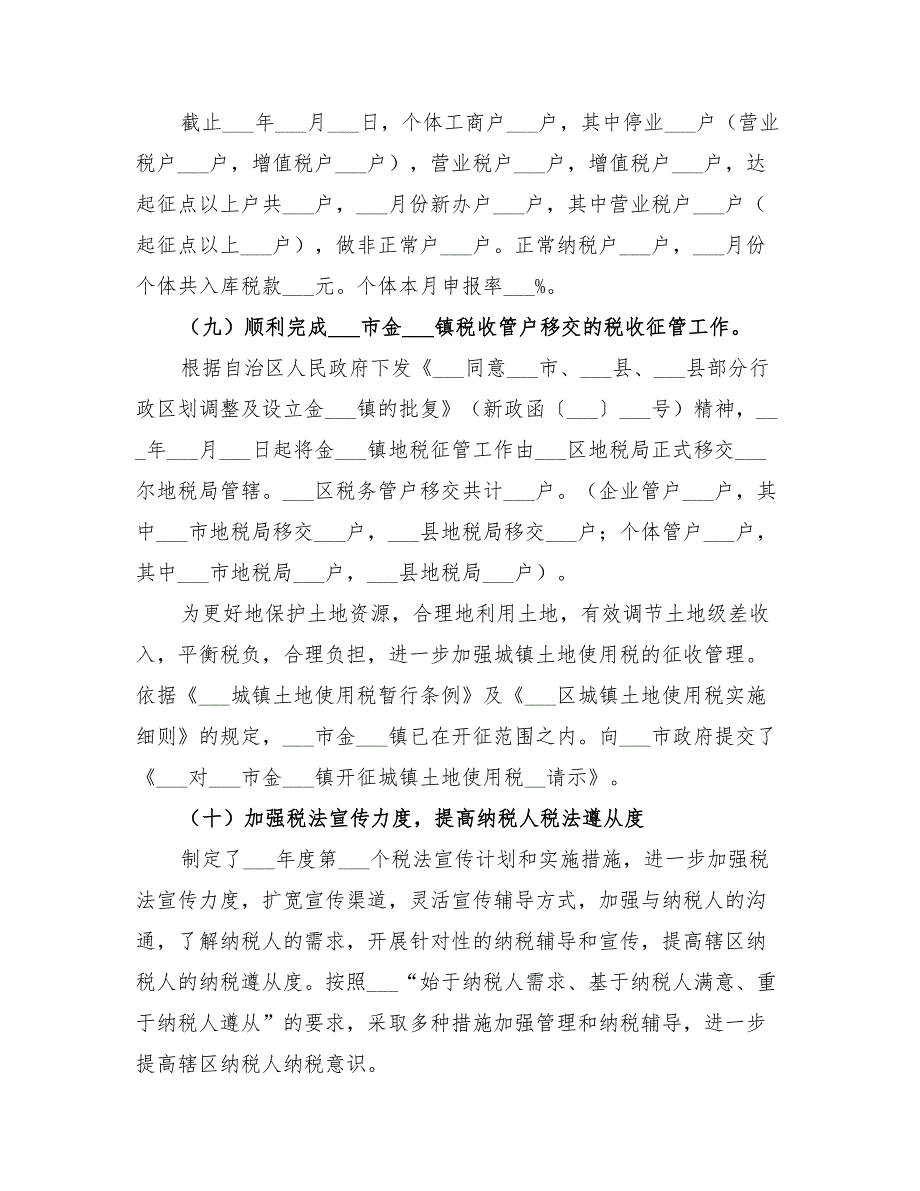 截止___年___月___日，个体工商户___户，其中停业___户（营业
税户___户，增值税户___户），营业税户___户，增值税户___户，达
起征点以上户共___户，___月份新办户___户，其中营业税户___户（
起征点以上___户），做非正常户___户。正常纳税户___户，___月份
个体共入库税款___元。个体本月申报率___%。
（九）顺利完成___市金___镇税收管户移交的税收征管工作。
根据自治区人民政府下发《___同意___市、___县、___县部分行
政区划调整及设立金___镇的批复》（新政函〔___〕___号）精神，__
_年___月___日起将金___镇地税征管工作由___区地税局正式移交___
尔地税局管辖。___区税务管户移交共计___户。（企业管户___户，其
中___市地税局移交___户，___县地税局移交___户；个体管户___户，
其中___市地税局___户，___县地税局___户）。
为更好地保护土地资源，合理地利用土地，有效调节土地级差收
入，平衡税负，合理负担，进一步加强城镇土地使用税的征收管理。
依据《___城镇土地使用税暂行条例》及《___区城镇土地使用税实施
细则》的规定，___市金___镇已在开征范围之内。向___市政府提交了
《___对___市金___镇开征城镇土地使用税__请示》。
（十）加强税法宣传力度，提高纳税人税法遵从度
制定了___年度第___个税法宣传计划和实施措施，进一步加强税
法宣传力度，扩宽宣传渠道，灵活宣传辅导方式，加强与纳税人的沟
通，了解纳税人的需求，开展针对性的纳税辅导和宣传，提高辖区纳
税人的纳税遵从度。按照___“始于纳税人需求、基于纳税人满意、重
于纳税人遵从”的要求，采取多种措施加强管理和纳税辅导，进一步
提高辖区纳税人纳税意识。